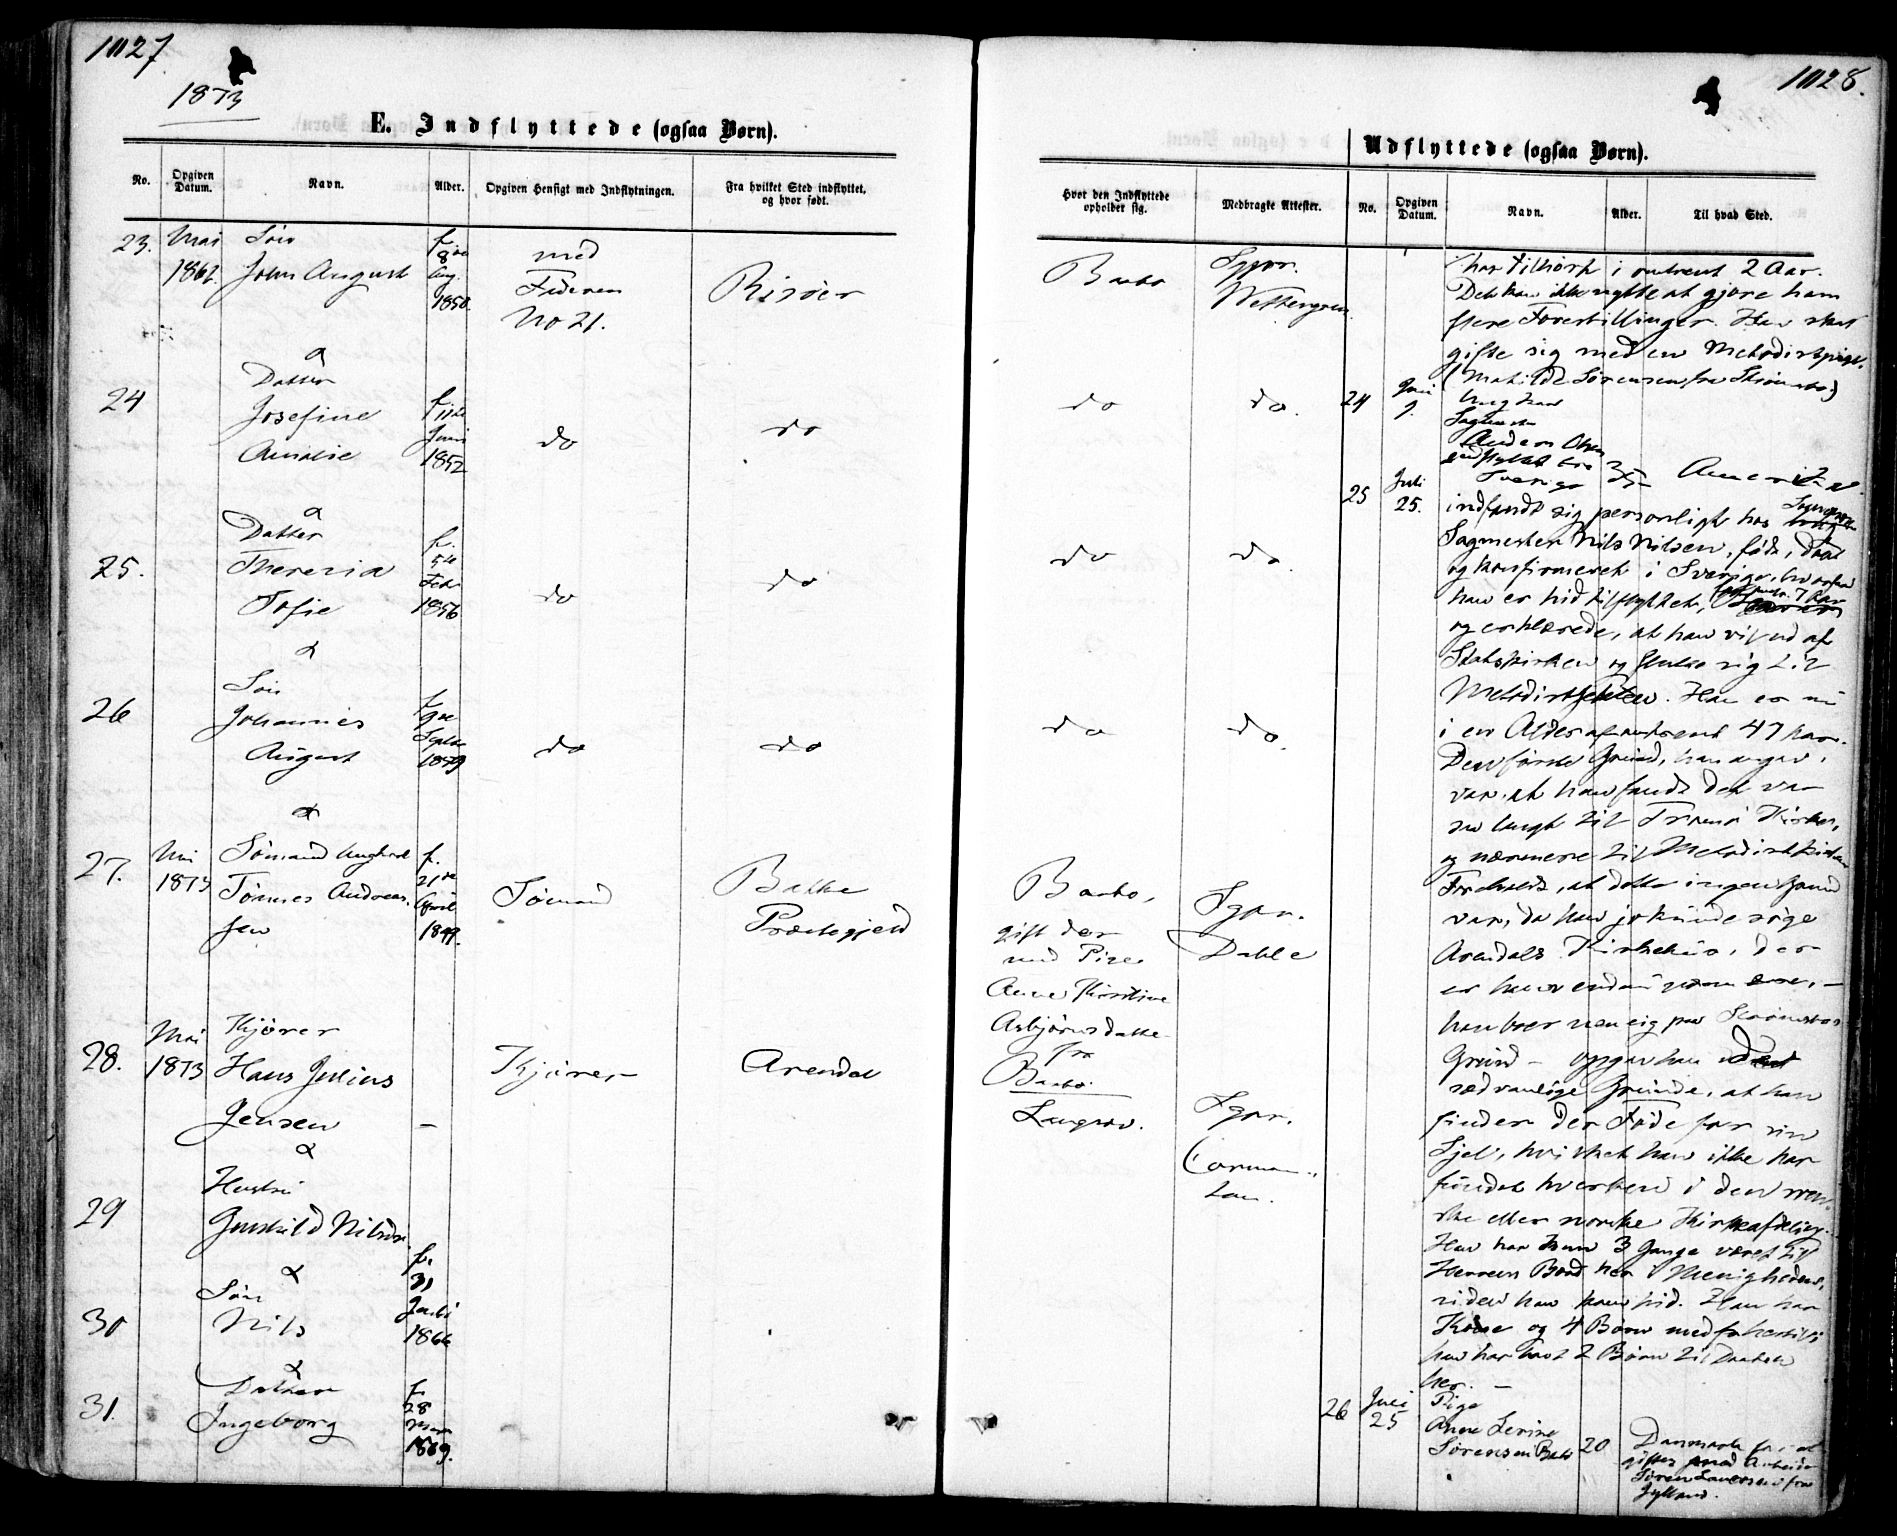 1027
1873
E. Indflyttede (ogsaa Børn).
No.
Opgiven Datum.
Navn.
Alder.
Opgiven Hensigt med Indflytningen.
Fra hvilket Sted indflyttet, og hvor født.
23.
Mai
1862
Søn
John August
f.
8de
Aug.
1850.
med
Faderen
No 21.
Risøer
24
Datter
Josefine
Amalie
f. 11te
Juni
1852
do
do
25.
Datter
Theresia
Sofie
f.
5te
Febr
1856
do
do
26
Søn
Johannes
August
f.
9de
Septbr
1859
do
do
27.
Mai
1873
Sømand Ungkarl
Tønnes Andreas
sen
f.
21de
April
1849.
Sømand
Bakke
Præstegjeld
28.
Mai
1873
Kjører
Hans Julius
Jensen
–
Kjører
Arendal
29
Hustru
Gunhild Nilsd.
30
Søn
Nils
f.
31
1866
31.
Datter
Ingeborg
f.
28
1869.
1028.
Udflyttede (ogsaa Børn).
Hvor den Indflyttede opholder sig.
Medbragte Attester.
No.
Opgiven Datum.
Navn.
Alder.
Til hvad Sted.
Barbo
Sgpr.
Wettergren.
do
do.
do
do.
do
do.
Barbo,
gift der
med Pige
Anne Kirstine
Asbjørnsdatter
fra
Barbo.
Sgpr.
Dahle
Langsæv.
Sgpr.
har tilhørt i omtrent 2 Aar.
Det kan ikke nytte at gjøre ham
flere Forestillinger. Han skal
gifte sig med en Metodistpige.
(Matilde Sørensen fra Strømsbo)
24
Juni
9.
Ungkarl
Sagmester
Anders Olsen
indflyttet fra
Sverige
35
Amerika
25
Juli
25.
indfandt sig personligt hos
Sagmester Nils Nilsen, født, døbt
og konfirmeret i Sverige, hvorfra
han er hid tilflyttet, for omtr. 7 Aar
og erklærede, at han vil ud af
Statskirken og slutte sig til
Metodistsekten. Han er nu
i en Alder af omtrent 47 Aar.
Den første Grund, han angav,
var, at han fandt det var
saa langt til Tromø Kirke,
og nærmere til Metodistkirken
Foreholdt, at dette ingen Grund
var, da han jo kunde søge
Arendals Kirkehus, der
er ham endnu nærmere, –
han boer nemlig paa Strømsbos
Grund – opgav han den
sædvanlige Grunde, at han
finder der Føde for sin
Sjel, hvilket han ikke har
fundet hverken i den sven-
ske eller norske Kirkeafdeling.
Han har kun 3 Gange været til
Herrens Bord her i Menigheden,
siden han kom hid. Han har
Kone og 4 Børn med
han har havt 2 Børn til Daaben
her. –
26
Juli
25
Pige
Anne Serine
Sørensen Barbo
20
Danmark for at
giftes med Arbeider
Søren Laursen fra
Jylland.